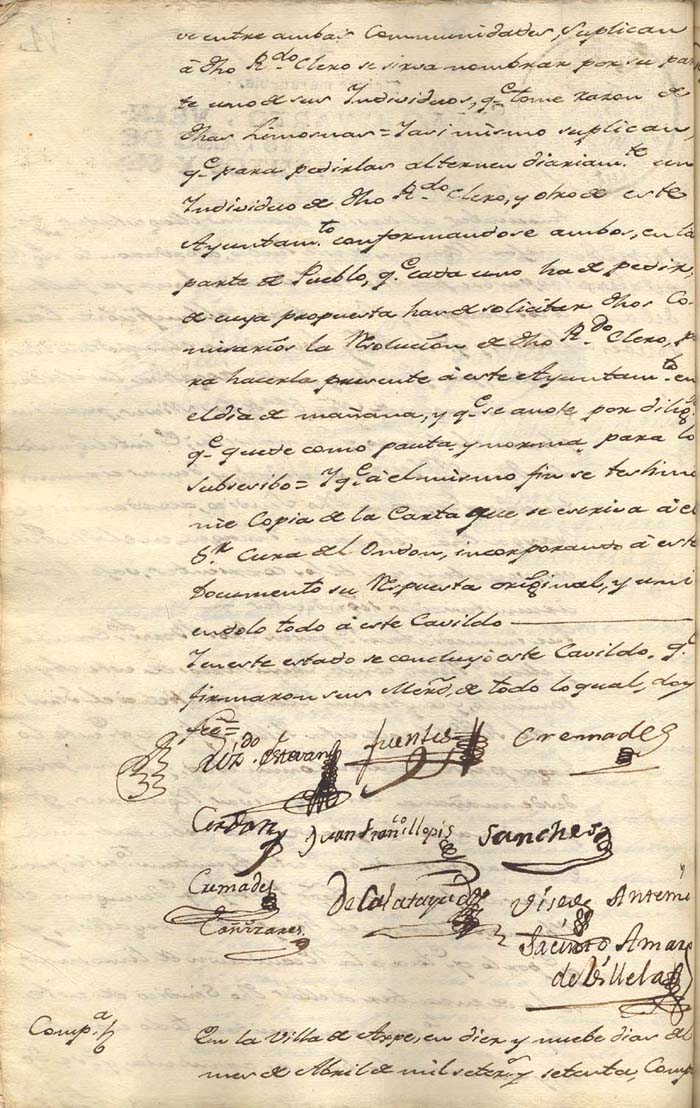 se entre ambas Communidades, Suplican
â dho R.do Clero se sirva nombrar por su par
te uno de sus Individuos, q.e tome razon de
dhas Limosnas = Y asi mismo suplican,
q.e para pedirlas alternen diariam.te un
Individuo de dho R.do Clero, y otro de este
Ayuntam.to conformandose ambos, en la
parte de Pueblo, q.e cada uno ha de pedir,
de cuya propuesta han de solicitar dhos Co-
misarios la Resolucion de dho R.do Clero, p.a
ra hacerla presente â este Ayuntam.to en
el dia de mañana, y q.e se anote por dilig.a
q.e quede como pauta y norma para lo
Subsesibo = Y q.e â el mismo fin se testimo
nie Copia de la Carta que se escriva â el
S.r Cura del Ondon, incorporando â este
Documento su Respuesta original, y uni
endolo todo â este Cavildo
Y en este estado se concluyó este Cavildo, q.e
firmaron sus Merz.s de todo lo qual, doy
feê =
Estevan fuentes Cremades
Cerdan Juan Fran.co llopis Sanches
Cremades de Calatayud
Cañizares
Jacinto Amar
de Villela
Comp.a
En la Villa de Aspe, en diez y nuebe dias del
mes de Abril de mil setez.s y setenta, Comp